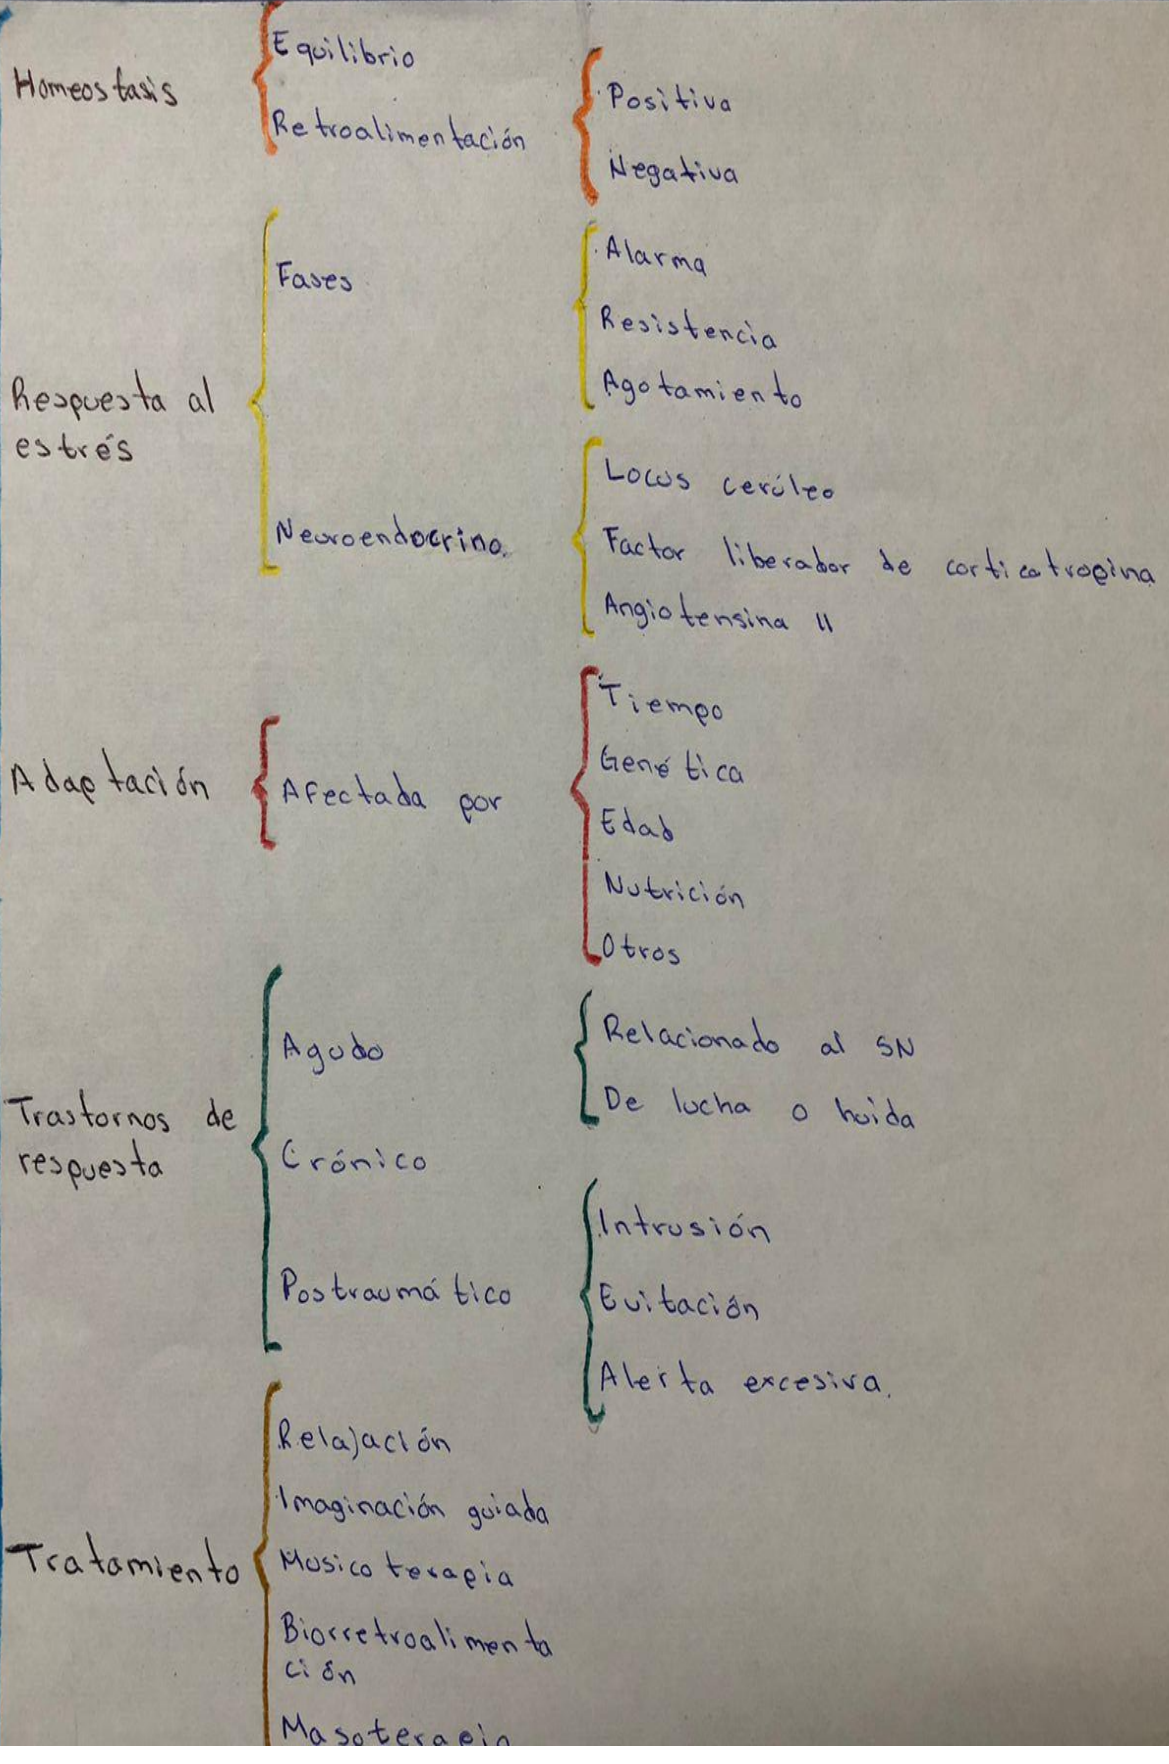 Homeostasis
Equilibrio
Retroalimentación
Positiva
Negativa
Respuesta al
estrés
Fases
Alarma
Resistencia
Agotamiento
Neuroendocrino.
Locus cerúleo
Factor liberador de corticotropina
Angiotensina II
Adaptación
Afectada por
Tiempo
Genética
Edad
Nutrición
Otros
Trastornos de
respuesta
Agudo
Relacionado al SN
De lucha o huida
Crónico
Postraumático
Intrusión
Evitación
Alerta excesiva.
Tratamiento
Relajación
Imaginación guiada
Musicoterapia
Biorretroalimenta
ción
Masoterapia